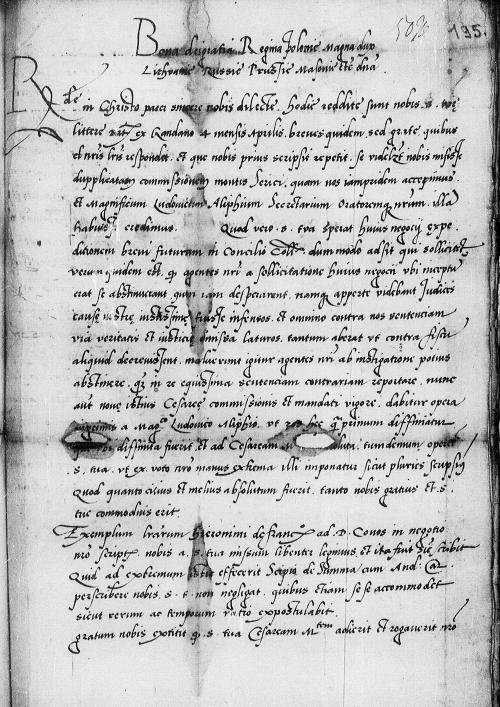 195.
Bona dei gratia Regina Polonie Magna dux
Lithvanie Russie Prussie Masovie etc dna.
Rde in Christo pater sincere nobis dilecte. Hodie reddite sunt nobis. s. 
littere ex Gandavo 4 mensis Aprilis. breves quidem, sed grate, quibus
respondet. et que nobis prius scripsit repetit. se videlzt nobis misisse
dupplicatam commissionem montis Serici, quam nos iampridem accepimus
et Magnificum Ludovicum Aliphium Secretarium Oratoremq nrum. illa
habuisse credimus. Quod vero. s. tva sperat huius negocij expe
ditionem brevi futuram in Concilio dummodo adsit qui sollicitet
verum quidem est, q agentes nri a sollicitatione huius negocij vbi inceptu
erat se abstinuerant, quum iam desperarent, namq apperte videbant Iudices
cause nostre iustissime infensos, et omnino contra nos sentenciam
via veritatis et iusticie omissa laturos. tantum aberat vt contra fiscu
aliquid decrevissent. maluerunt igitur agentes nri ab instigatione potius
abstinere. in re equissima sentenciam contrariam reportare. nunc
aut nove istius Cesaree commissionis et mandati vigore. dabitur opera
Ludovico Aliphio. vt primum diffiniatur
diffinita fuerit, et ad Cesaream tandemum opera
. s. tva. vt ex voto nro manus extrema illi imponatur sicut pluries scripsim
Quod quanto citius et melius absolutum fuerit. tanto nobis gratius et. s.
tue commodius erit.
Exemplum Hieronimi de ad. D. Covos in negotio
nro script nobis a. s. tua missum libenter legimus, et ita fiat sicut scribit
Quid ad extremum effecerit Scipio de Summa cum And:
perscribere nobis. s. t. non negligat. quibus etiam se se accommodet
sicut rerum ac temporum ratio expostulabit.
gratum nobis extitit q. s. tua Cesaream Mtem adierit et rogaverit nro